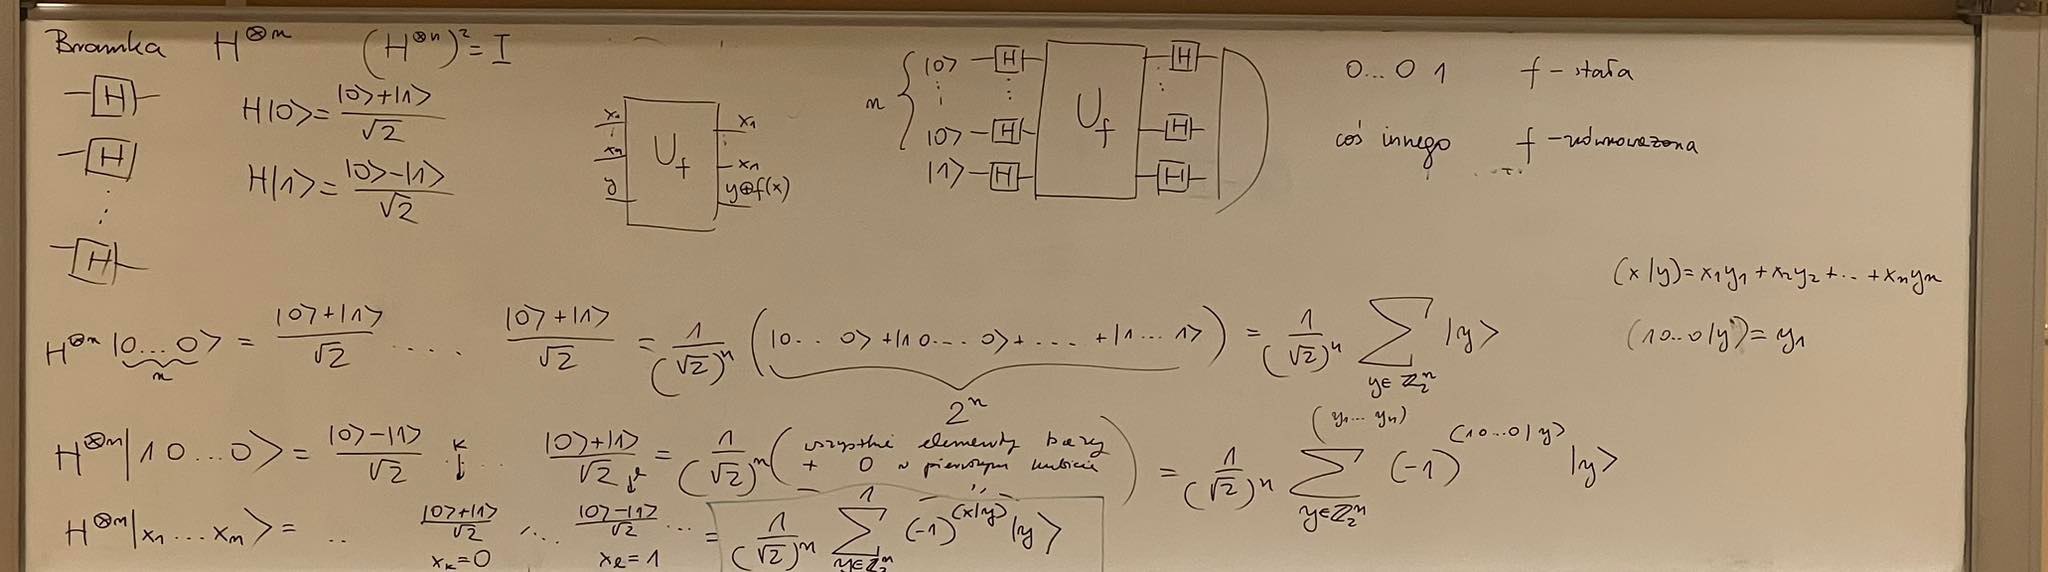 Bramka H^{⊗n} (H^{⊗n})² = I
H
H
⋮
H
H|0> = (|0>+|1>)/√2
H|1> = (|0>-|1>)/√2
x₁ ⋮ xₙ y U_f x₁ xₙ y⊕f(x)
n { |0> ⋮ |0> |1> H ⋮ H H U_f H ⋮ H H
0...0 1 f - stała
coś innego f - zrównoważona
(x|y) = x₁y₁ + x₂y₂ + ... + xₙyₙ
(10..0|y) = y₁
H^{⊗n} |0...0> (n) = (|0>+|1>)/√2 .... (|0>+|1>)/√2 = 1/(√2)ⁿ (|0... 0> + |10...0> + .... + |1...1>) = 1/(√2)ⁿ ∑_{y∈ℤ₂ⁿ} |y>
2ⁿ
(y₁...yₙ)
H^{⊗n}|10...0> = (|0>-|1>)/√2 ... (|0>+|1>)/√2 = 1/(√2)ⁿ (wszystkie elementy bazy + 0 w pierwszym kubicie - 1 -〃-) = 1/(√2)ⁿ ∑_{y∈ℤ₂ⁿ} (-1)^{(10...0|y)} |y>
k ↓ l ↓
H^{⊗n}|x₁...xₙ> = .. (|0>+|1>)/√2 ... (|0>-|1>)/√2 ... = 1/(√2)ⁿ ∑_{y∈ℤ₂ⁿ} (-1)^{(x|y)} |y>
x_k=0 x_l=1